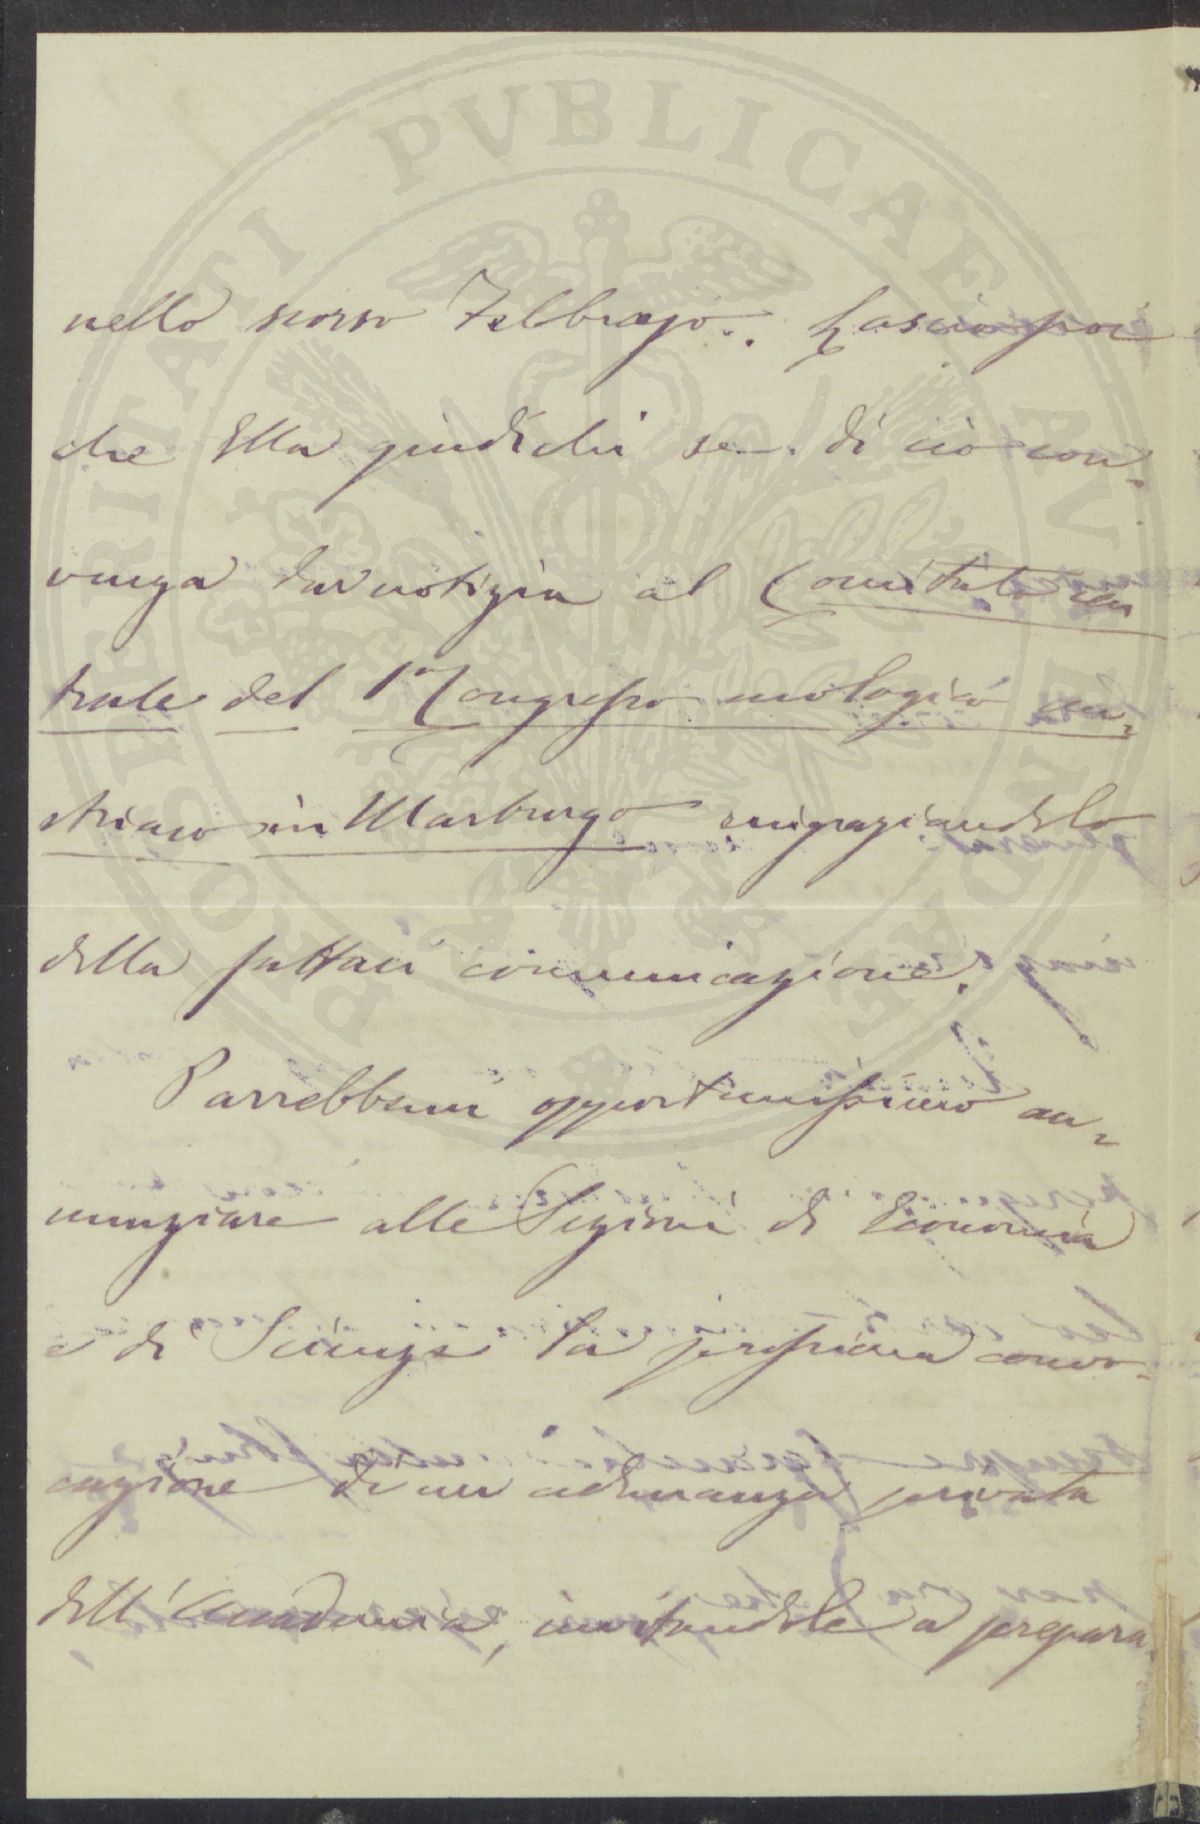 PROSPERITATI PVBLICAE AVGENDAE
nello scorso Febbrajo. Lascio poi
che Ella giudichi se di ciò con-
venga dar notizia al Comitato cen
trale del 1º Congresso enologico au-
striaco in Marburgo ringraziandolo
della fattaci comunicazione.
Parrebbemi opportunissimo an-
nunziare alle Sezioni di Economia
e di Scienze la prossima convo-
cazione di un adunanza privata
dell'Accademia, invitandole a prepara-